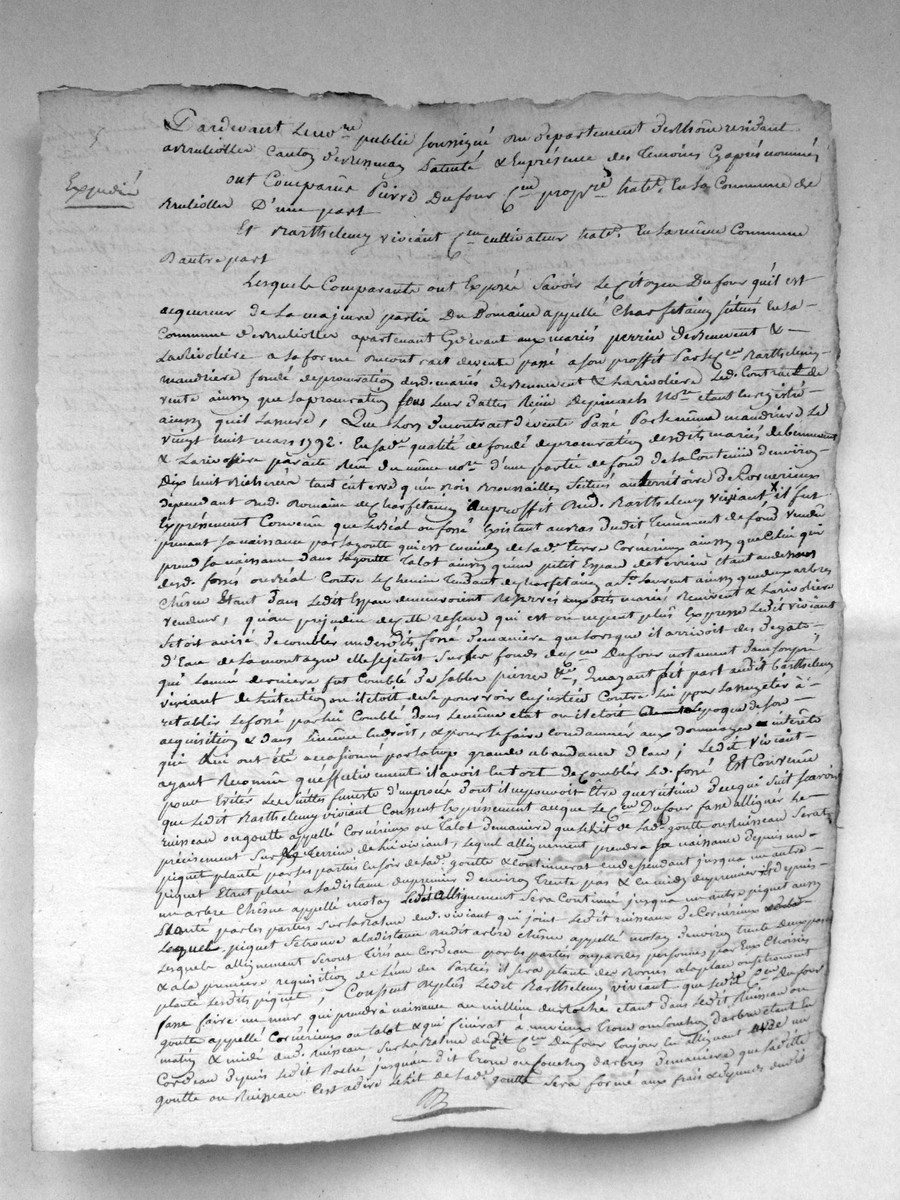 Expédié
Pardevant Le no.re public soussigné du departement du Rhône residant
a Brulioller Canton de Patenté & En présence des Temoins Cy après nommés
ont Comparus Pierre Dufour C.en propr.re habt. En la Commune de
Brulioller D'une part
Et Barthelemy viviant C.en cultivateur habt. En la même Commune
D'autre part
Lesquels Comparants ont Exposé Savoir Le Citoyen Dufour qu'il est
acquereur de La majeure partie Du Domaine appellé Charfetain Situés En la
Commune de Brulioller apartenant Cy devant aux mariés perrin de Benevent &
Larivoliere a la forme du contrait de vente passé a son proffit Par Le C.en Barthelemy
mandriere fondé de procuration desd. mariés de Bennevent & Larivoliere Led. Contrait de
vente ainssy que la procuration sous Leur Dattes Reçue Depinack No.re etant Enregistré
ainssy qu'il L'assure, Que Lors du contrait de vente Passé Par le même mandriere Le
vingt huit mars 1792. En sad. qualité de fondé de procuration desdits mariés de bennevent
& Larivoliere par acte Reçu Du même no.re d'une partie de fond de la Contenue d'environ
Dix huit Bicherée tant en terre qu'en Bois Broussailles Situés au territoire de Cornérieux
dependant dud. Domaine de Charfetain au proffit Dud. Barthelemy viviant, il fut
Expressement Convenu que Le Béal ou fossé Existant au bas dudit Tennement de fond vendu
prenant sa naissance par la goutte qui est au milieu de lad. terre Cornérieux ainssy que Celui qui
prend sa naissance dans la goutte Talot ainssy qu'un petit Espace de terrein etant au dessous
desd. fossés ou Béal Contre Le Chemin Tendant de Charfetain a St Laurent ainssy que deux arbres
Chêne Etant dans Ledit Espace demeuroient Reservés auxdits mariés Benevent & Larivoliere
vendeur, qu'au préjudice de cette reserve qui est on ne peut plus Expresse Ledit viviant
S'etoit avisé de combler un desdits fossé de maniere que lorsque il arrivoit des Degats
d'Eau de La montagne elle se jetoit Sur les fonds du C.en Dufour notament dans son pré
qui L'année derniere fut Comblé de Sables pierres &c.,
viviant de L'intention ou il etoit de se pourvoir En justice Contre Lui pour L'assujetir à
retablir Le fossé par lui Comblé dans Le même etat ou il etoit a L'epoque de son
acquisition & dans Le même Endroit, & pour le faire Condamner aux dommages interêts
qui Lui ont été occasionné par la trop grande abondance d'Eau; Ledit Viviant
ayant Reconnu qu'effectivement il avoit Eu tort de Combler Led. fossé Est Convenu
pour Eviter Les suittes funeste d'un procès Dont il ne pouvoit Être que victime De ce qui Suit Savoir
que Ledit Barthelemy viviant Consent Expressement a ce que Le C.en Dufour fasse alligner Le
ruisseau ou goutte appellé Cornérieux ou Talot De maniere que Le lit de lad. goutte ou Ruisseau Serat
précisement Sur Le Terrein de lui viviant, Lequel allignement prendra sa naissance depuis un
piquet planté par les parties au soir de lad. goutte & Continuerat En descendant jusqu'a un autre
piquet Etant placé a la distance du premier d'environ Trente pas & au midy du premier et depuis
un arbre Chêne appellé motay Ledit allignement Sera Continué jusqu'a un autre piquet aussy
planté par les parties Sur la Batme dud. viviant qui joint Ledit Ruisseau de Cornérieux
Lequel piquet Se trouve a la distance dudit arbre chêne appellé motay d'environ trente deux pas
Lesquels allignement Seront tirés au Cordeau par les parties ou par des personnes par Eux Choisies
& a la premiere requisition de L'une des Parties il Sera planté des Bornes a la place ou sestrouvent
planté Lesdits piquet, Consent deplus Ledit Barthelemy viviant que Ledit C.en Dufour
fasse faire un mur qui prendra naissance au millieu du Roché etant dans Ledit Ruisseau ou
goutte appellé Cornérieux ou talot & qui finirat a un vieux Tronc ou souchon d'arbre etant En
matin & midy dud. Ruisseau Sur la Batme dudit C.en Dufour Toujour En allignant
Cordeau depuis Ledit Roché jusqu'au dit Tronc ou Souchon d'arbre De maniere que La ditte
goutte ou Ruisseau C'est a dire Le lit de lad. goutte Sera formé aux frais & depends dudit